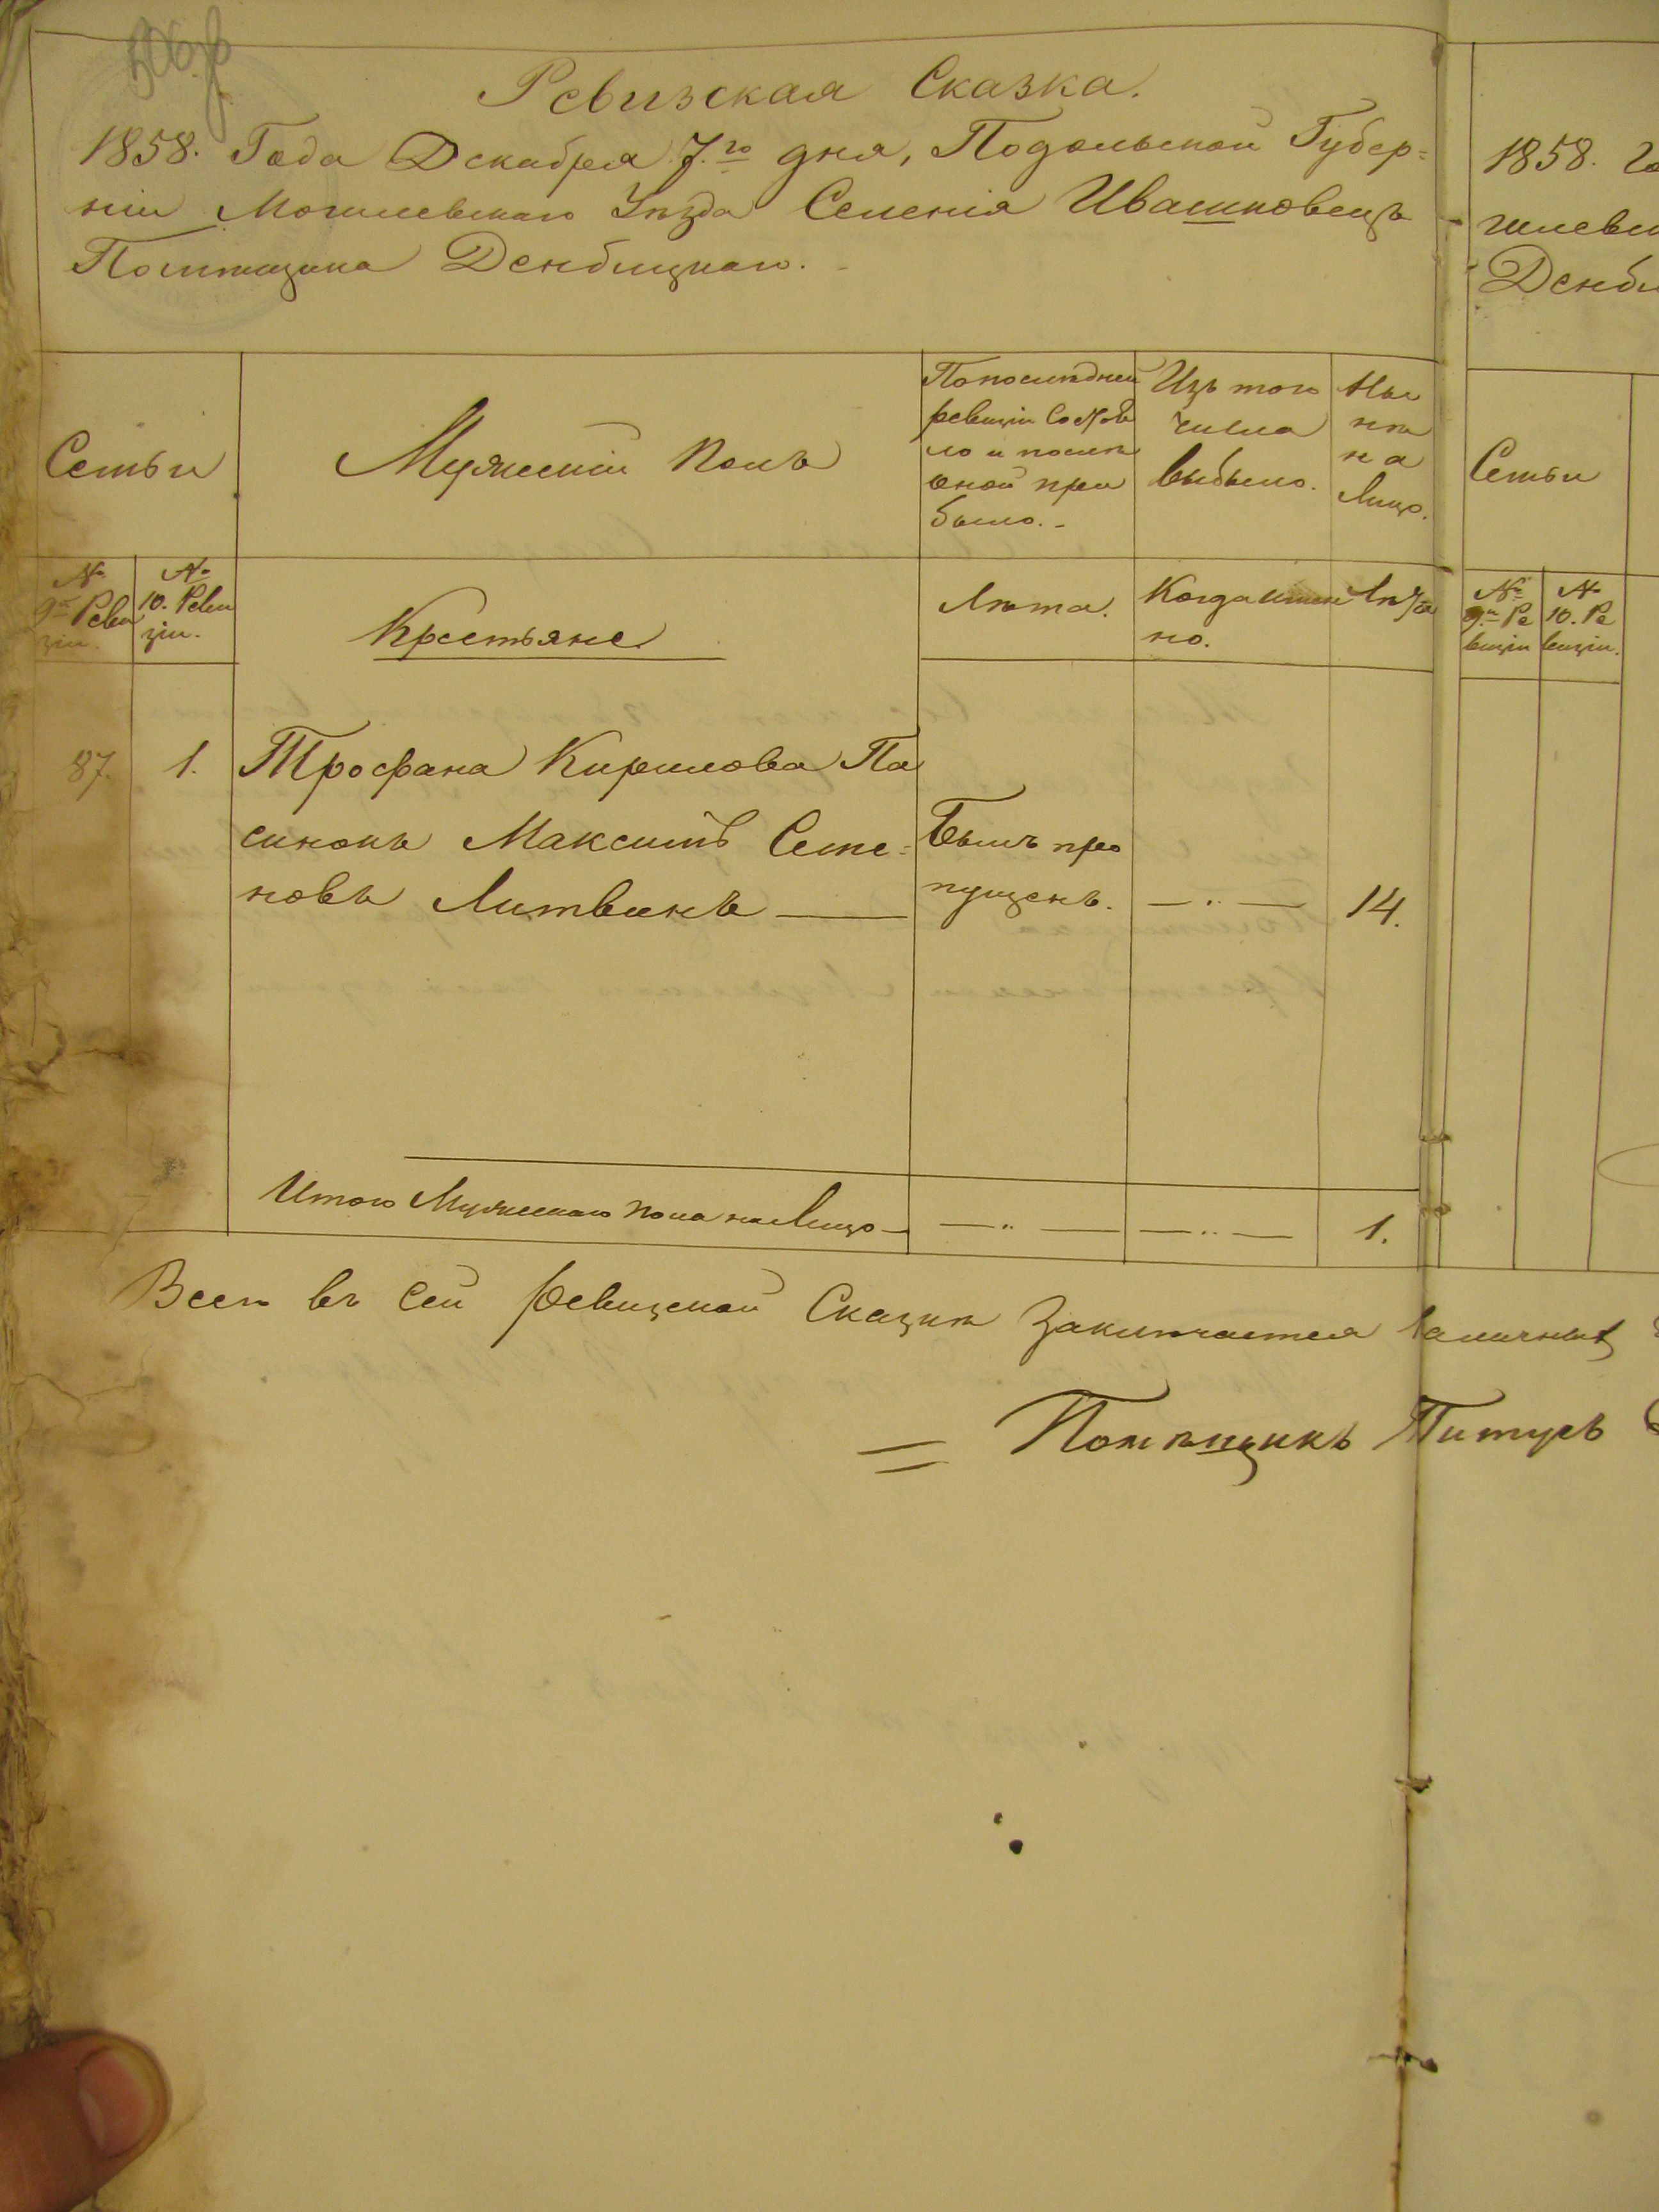 Ревизская Сказка.
1858. Года Декабря 7.го дня, Подольской Губер=
ніи Могилевскаго Уѣзда Селенія Ивашковецъ
Помѣщика Дембицкаго.
Семьи
Мужескій Полъ
По последней
ревизіи состоя
ло и после
оной при
было.
Изъ того
числа
выбыло.
Ны
нѣ
на
лицо.
№
9й Реви
зіи.
№
10. Реви
зіи.
Крестьяне
Лѣта.
Когда имен
но.
Лѣта
87.
1.
Трофана Кирилова Па
синокъ Максимъ Семе=
новъ Литвинъ
Былъ про
пущенъ.
14.
Итого Мужескаго пола на лицо
1.
Всего въ сей ревизской Сказкѣ Заключается наличныхъ
Помѣщикъ Титусъ
1858. Го
гилевс
Дембі
Семьи
№
9.й Ре
визіи
№
10. Ре
визіи.